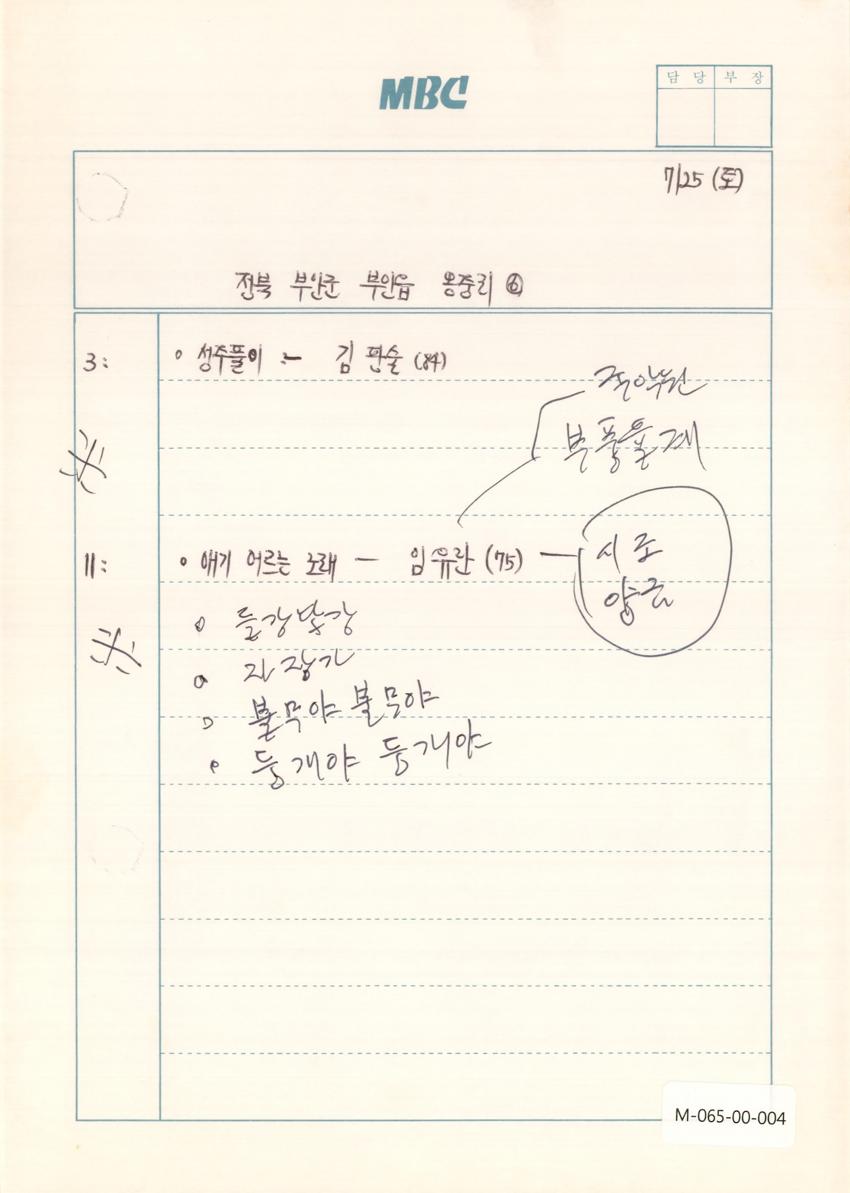 MBC
담 당 부 장
7/25 (토)
전북 부안군 부안읍 옹중리 ⑥
3: ∘ 성주풀이 :- 김판술 (84)
국악원
부풍율계
11: ∘ 애기 어르는 노래 - 임유란 (75) -
시조
양금
∘ 들강날강
∘ 자장가
∘ 불무야 불무야
∘ 둥개야 둥개야
M-065-00-004